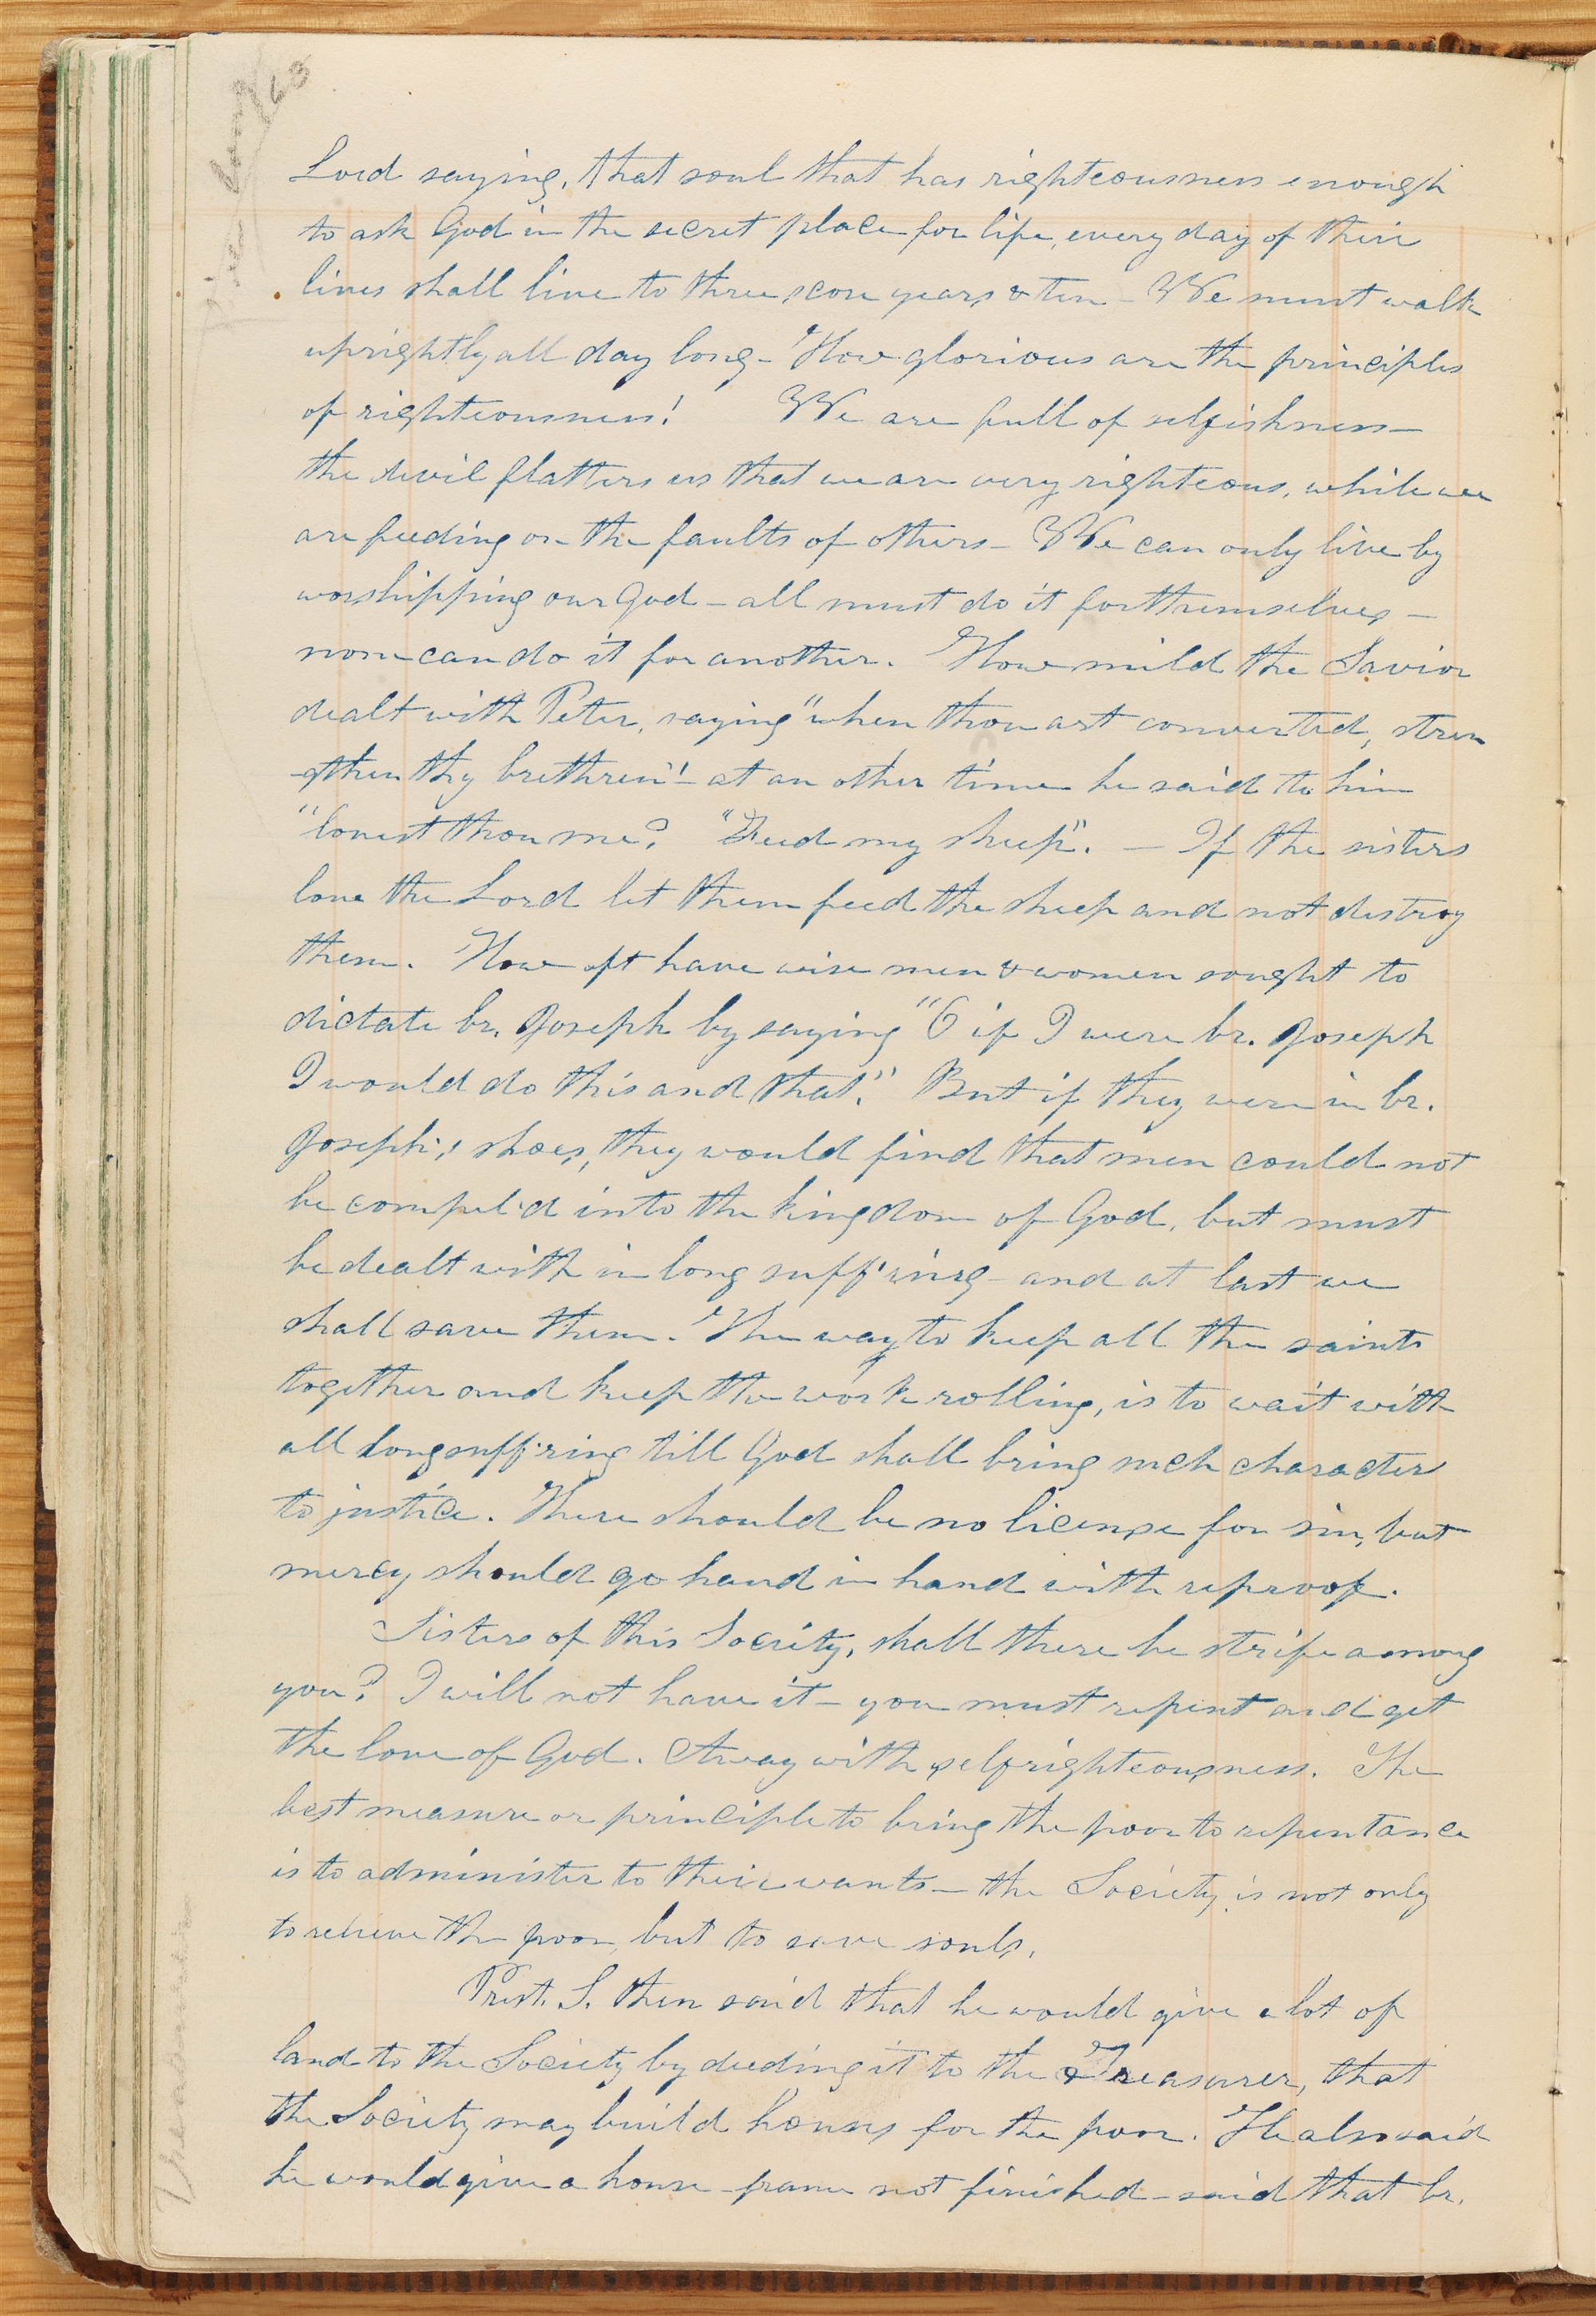 Lord saying, that soul that has righteousness enough
to ask God in the secret place for life, every day of their
lives shall live to three score years & ten — We must walk
uprightly all day long — How glorious are the principles
of righteousness! We are full of selfishness —
the devil flatters us that we are very righteous, while we
are feeding on the faults of others — We can only live by
worshipping our God — all must do it for themselves —
none can do it for another. How mild the Savior
dealt with Peter, saying "when thou art converted, stren
-gthen thy brethren" — at an other time he said to him
"lovest thou me? "Feed my sheep". — If the sisters
love the Lord let them feed the sheep and not destroy
them. How oft have wise men & women sought to
dictate br. Joseph by saying "O if I were br. Joseph
I would do this and that." But if they were in br.
Joseph's shoes, they would find that men could not
be compel'd into the kingdom of God, but must
be dealt with in long suff'ring — and at last we
shall save them. The way to keep all the saints
together and keep the work rolling, is to wait with
all long suff'ring till God shall bring such character
to justice. There should be no license for sin, but
mercy should go hand in hand with reproof.
Sisters of this Society, shall there be strife among
you? I will not have it — you must repent and get
the love of God. Away with selfrighteousness. The
best measure or principle to bring the poor to repentance
is to administer to their wants — the Society is not only
to relieve the poor, but to save souls.
Prest. S. then said that he would give a lot of
land to the Society by deeding it to the Treasurer, that
the Society may build houses for the poor. He also said
he would give a house — frame not finished — said that br.